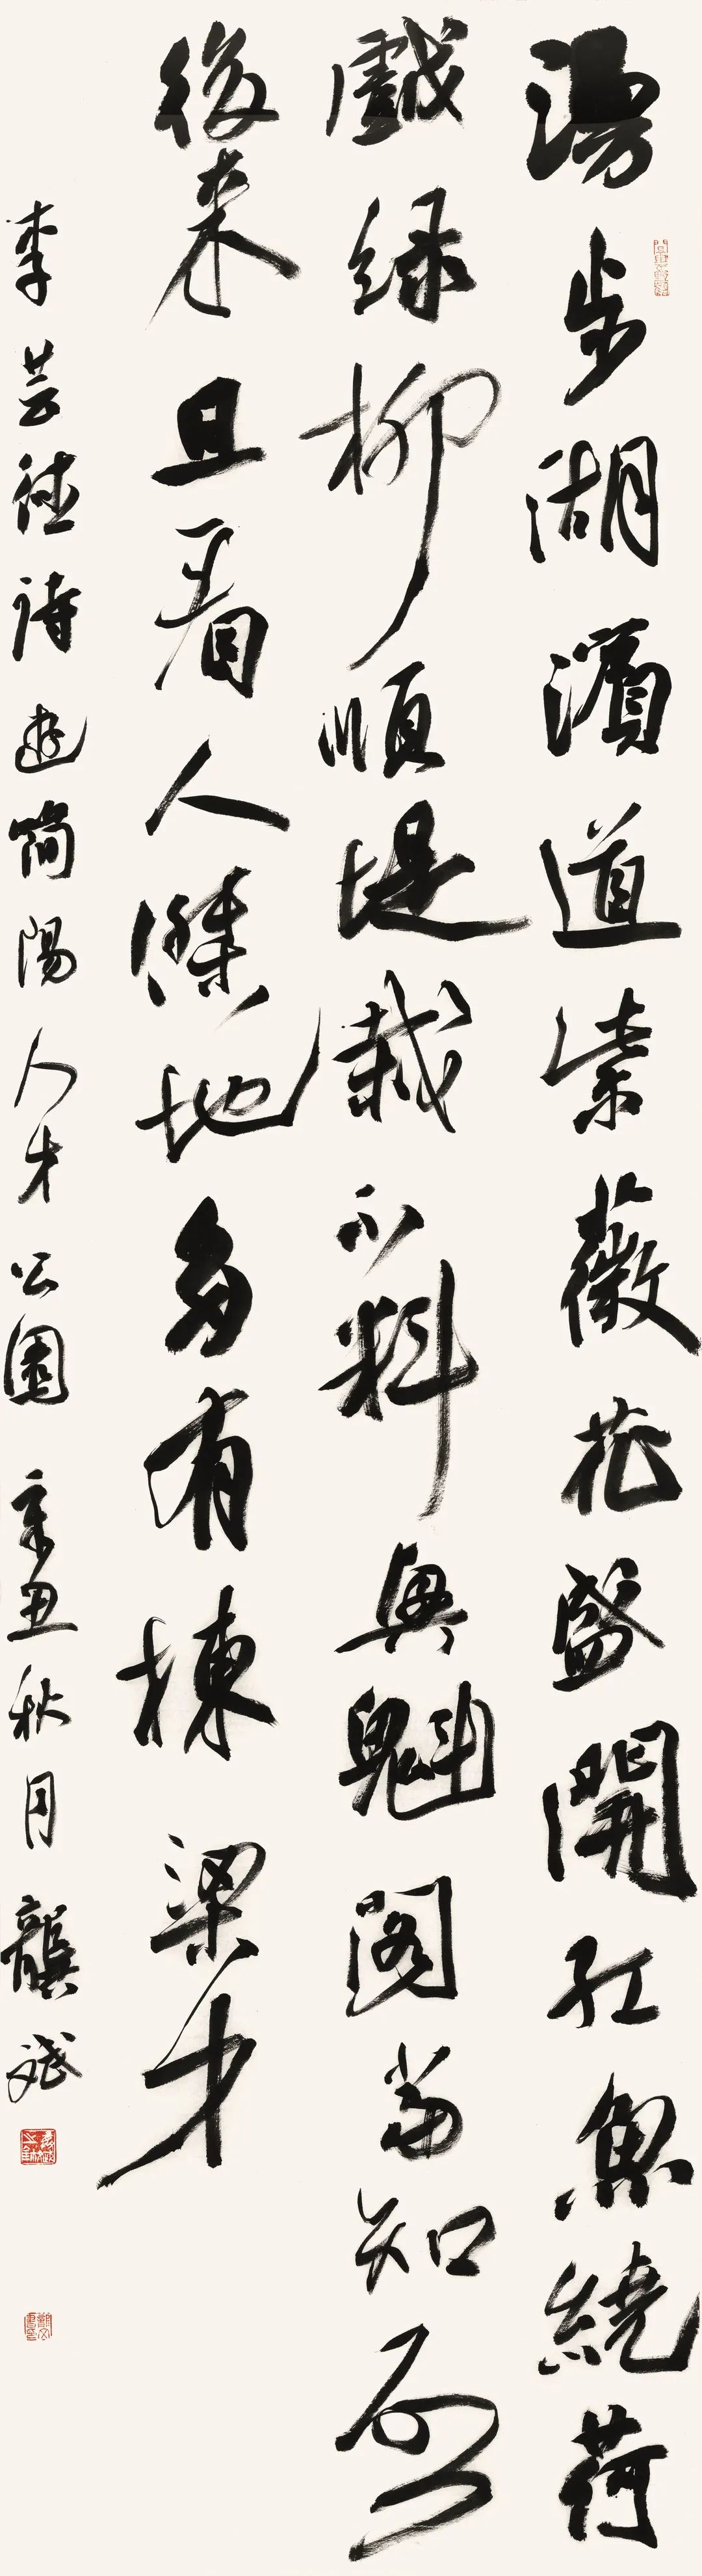 漫步湖濱道紫薇花盛開紅魚繞荷
戲綠柳順堤栽不料興魁閣當知啟
後来且看人傑地多有棟梁才
李芸德詩遊简陽人才公園 辛丑秋月 龔斌